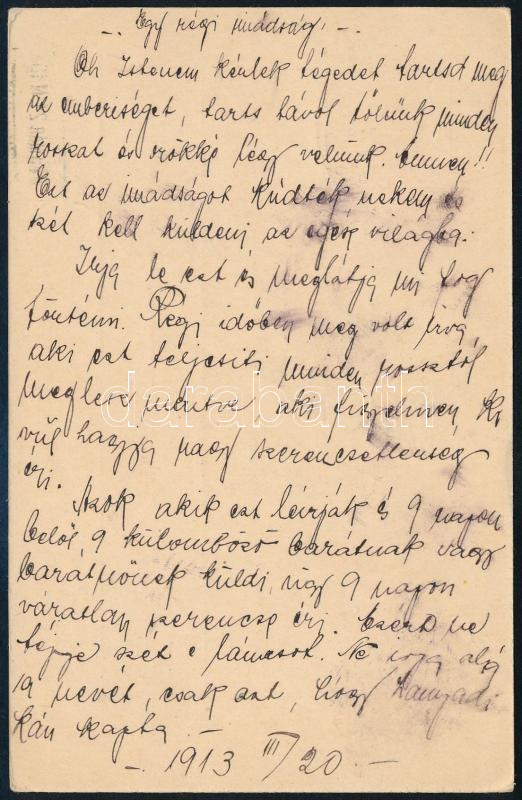 -. Egy régi imádság. -.
Oh Istenem kérlek tégedet tartsd meg
az emberiséget, tarts távol tőlünk minden
rosszat és örökké légy velünk. Ammen!!
Ezt az imádságot küdték nekem és
szét kell küldeni az egész világba.
Irja le ezt és meglátja mi fog
történni. Régi időben meg volt irva
aki ezt teljesiti minden rossztól
meg lesz mentve aki figyelmen ki
vül hagyja nagy szerencsetlenség
éri.
Azok akik ezt leirják és 9 napon
belől 9 külombözö barátnak vagy
barátnönek küldi, úgy 9 napon
váratlan szerencse éri. Ezért ne
tépje szét e lánczot. Ne irja alá
a nevét, csak azt, hogy
kán kapta. -
-. 1913 III/20. -
darabanth